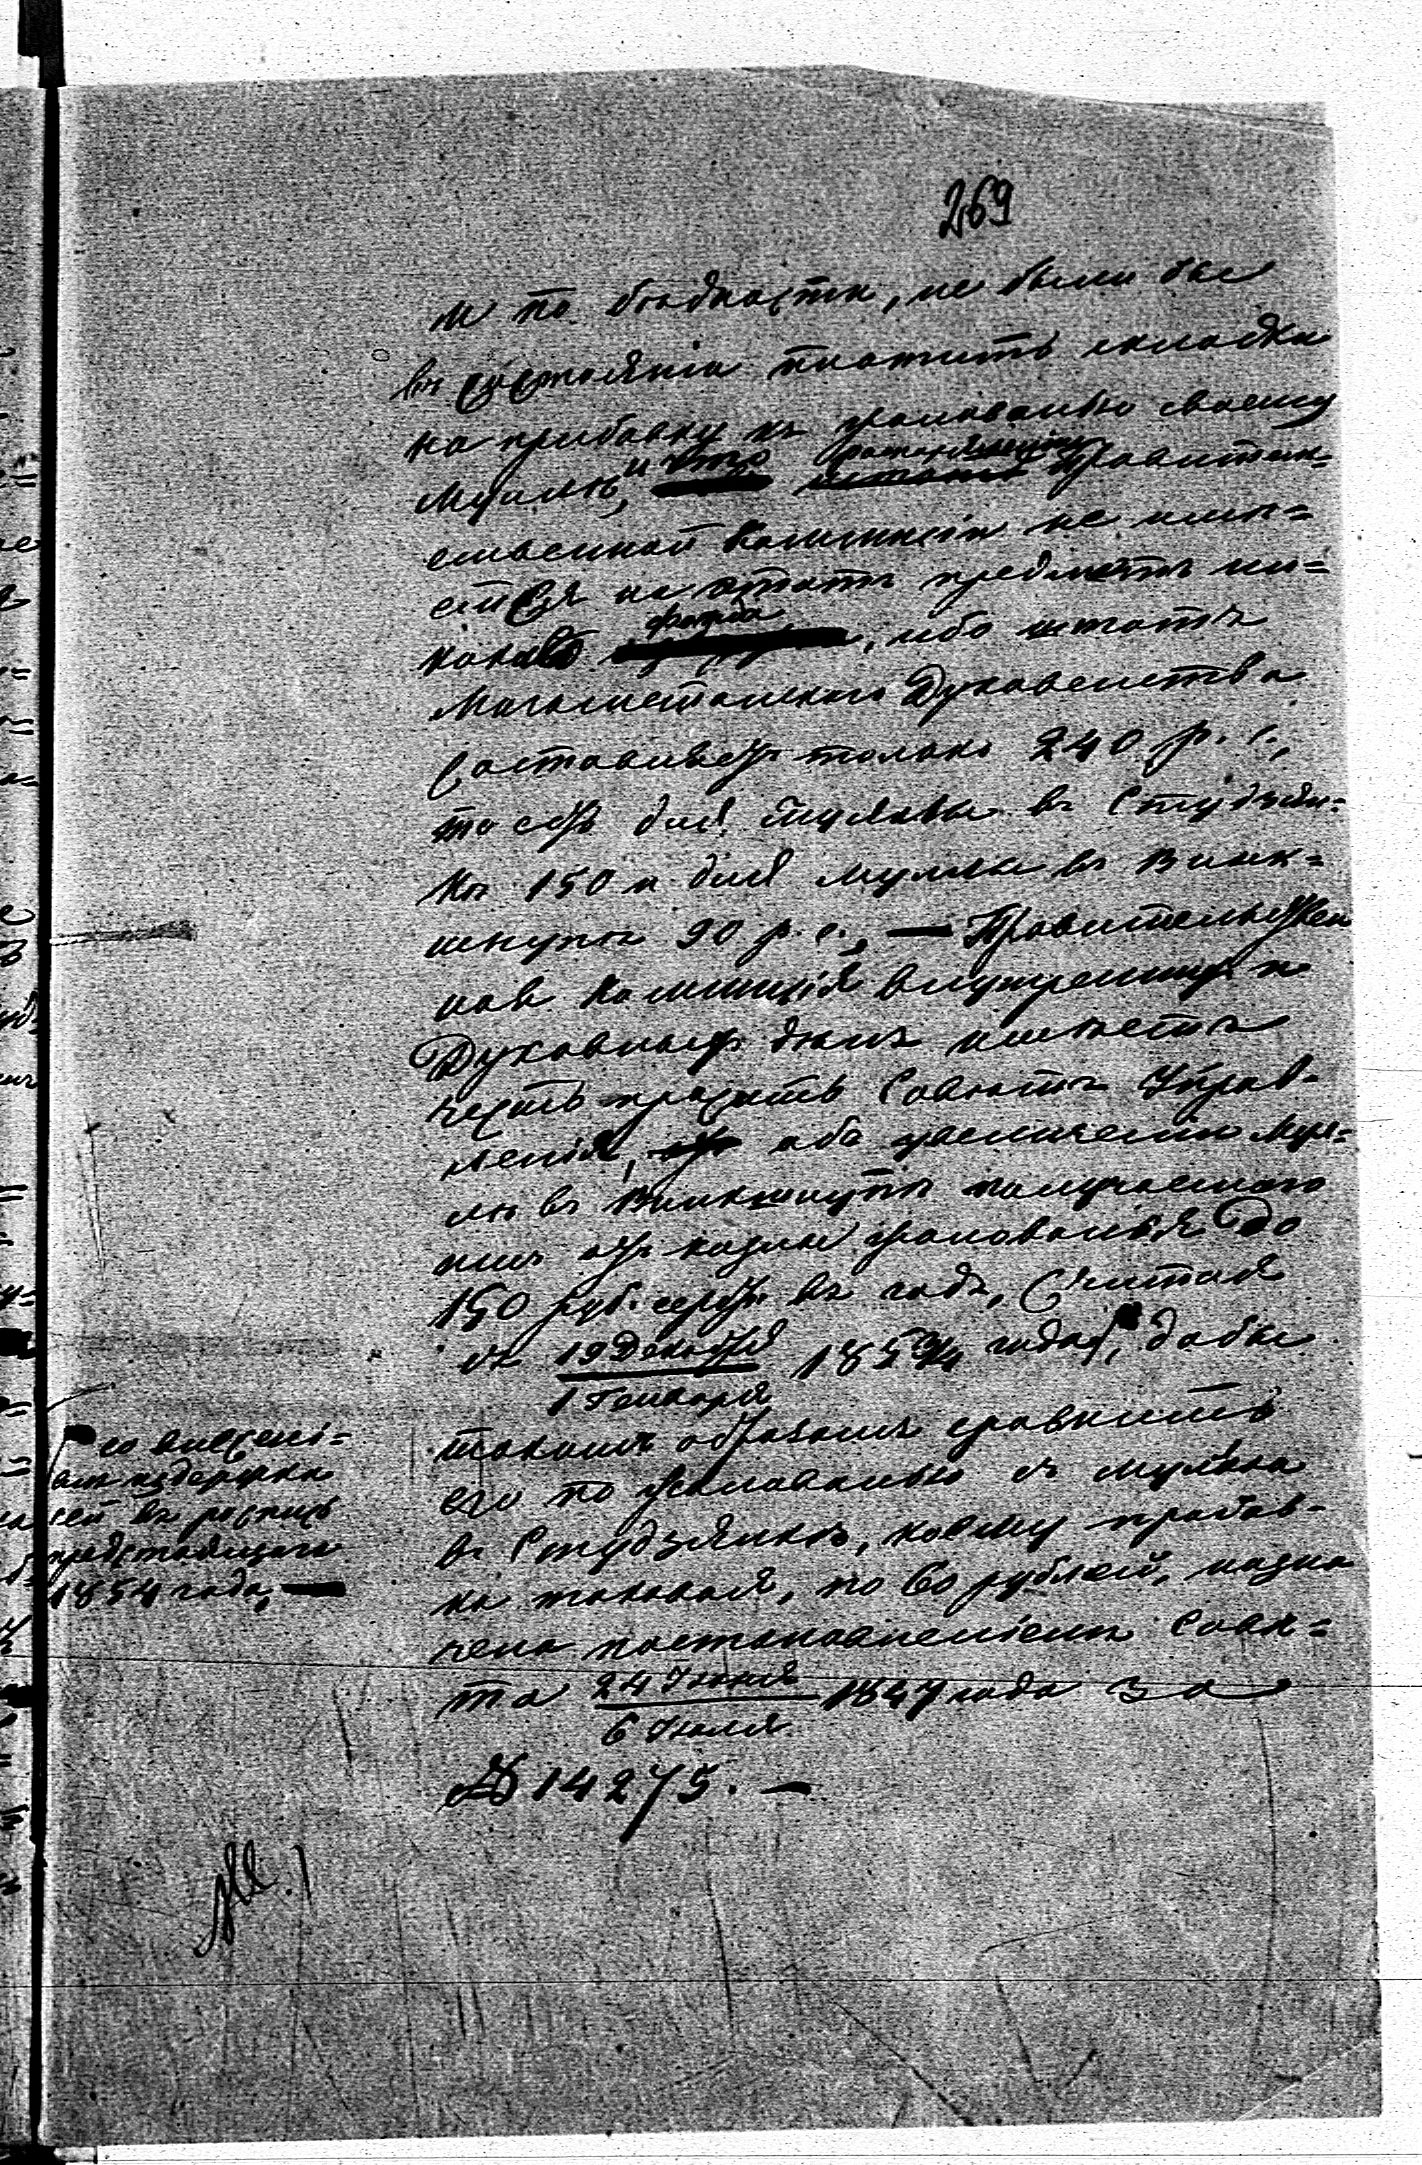 269
и по бѣдности, не были бы
въ состояніи платить складки
на прибавку къ жалованью своему
Муллѣ, и что въ распоряженіи Правитель=
ственной Коммисіи не имѣ=
ется на этотъ предметъ ни=
какого фонда, ибо штатъ
Магометанскаго Духовенства
составляетъ только 240 р. с.,
то есть для Муллы въ Студзян=
кѣ 150 и для Муллы въ Винк=
шнупѣ 90 р. с., — Правительствен
ная Коммисія Внутреннихъ и
Духовныхъ дѣлъ имѣетъ
честь просить Совѣтъ Управ-
ленія, объ увеличеніи Мул=
лѣ въ Винкшнупѣ получаемаго
имъ отъ казны жалованья до
150 руб. сереб. въ годъ, считая
съ 19 Декабря / 1 Генваря 1853/4 года, дабы
такимъ образомъ сравнить
его по жалованью съ Муллою
въ Студзянкѣ, коему прибав-
ка таковая, по 60 рублей, назна
чена постановленіемъ Совѣ=
та 24 Іюня / 6 Іюля 1847 года за
№ 14275. —
со внесені=
емъ издержки
сей въ роспись
предстоящаго
1854 года, —